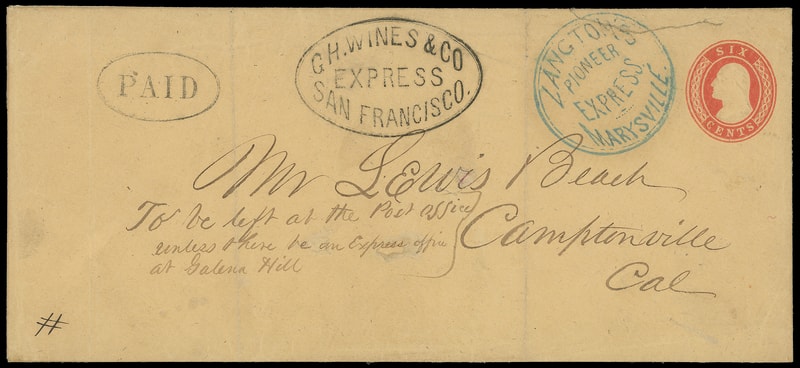 PAID
G.H. WINES & CO
EXPRESS
SAN FRANCISCO.
LANGTON'S
PIONEER
EXPRESS
MARYSVILLE.
SIX
CENTS
Mr Lewis Beach
To be left at the Post office
unless there be an Express office
at Galena Hill
Camptonville
Cal
#